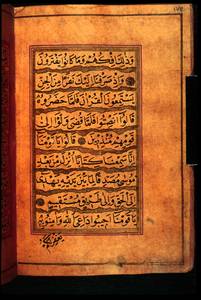 وَذٰلِكَ اِفْكُهُمْ وَمَا كَانُوا يَفْتَرُونَ
وَاِذْ صَرَفْنَا اِلَيْكَ نَفَرًا مِنَ الْجِنِّ
يَسْتَمِعُونَ الْقُرْاٰنَ فَلَمَّا حَضَرُوهُ
قَالُوا اَنْصِتُوا فَلَمَّا قُضِيَ وَلَّوْا اِلٰى
قَوْمِهِمْ مُنْذِرِينَ قَالُوا يَا قَوْمَنَا
اِنَّا سَمِعْنَا كِتَابًا اُنْزِلَ مِنْ بَعْدِ
مُوسٰى مُصَدِّقًا لِمَا بَيْنَ يَدَيْهِ يَهْدِي
اِلَى الْحَقِّ وَاِلٰى طَرِيقٍ مُسْتَقِيمٍ
يَا قَوْمَنَا اَجِيبُوا دَاعِيَ اللّٰهِ وَاٰمِنُوا بِهِ